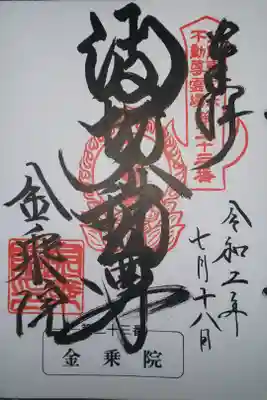 奉拝
不動尊霊場
十三番
波切不動尊
金乗院
令和二年
七月十八日
十三番
金乗院